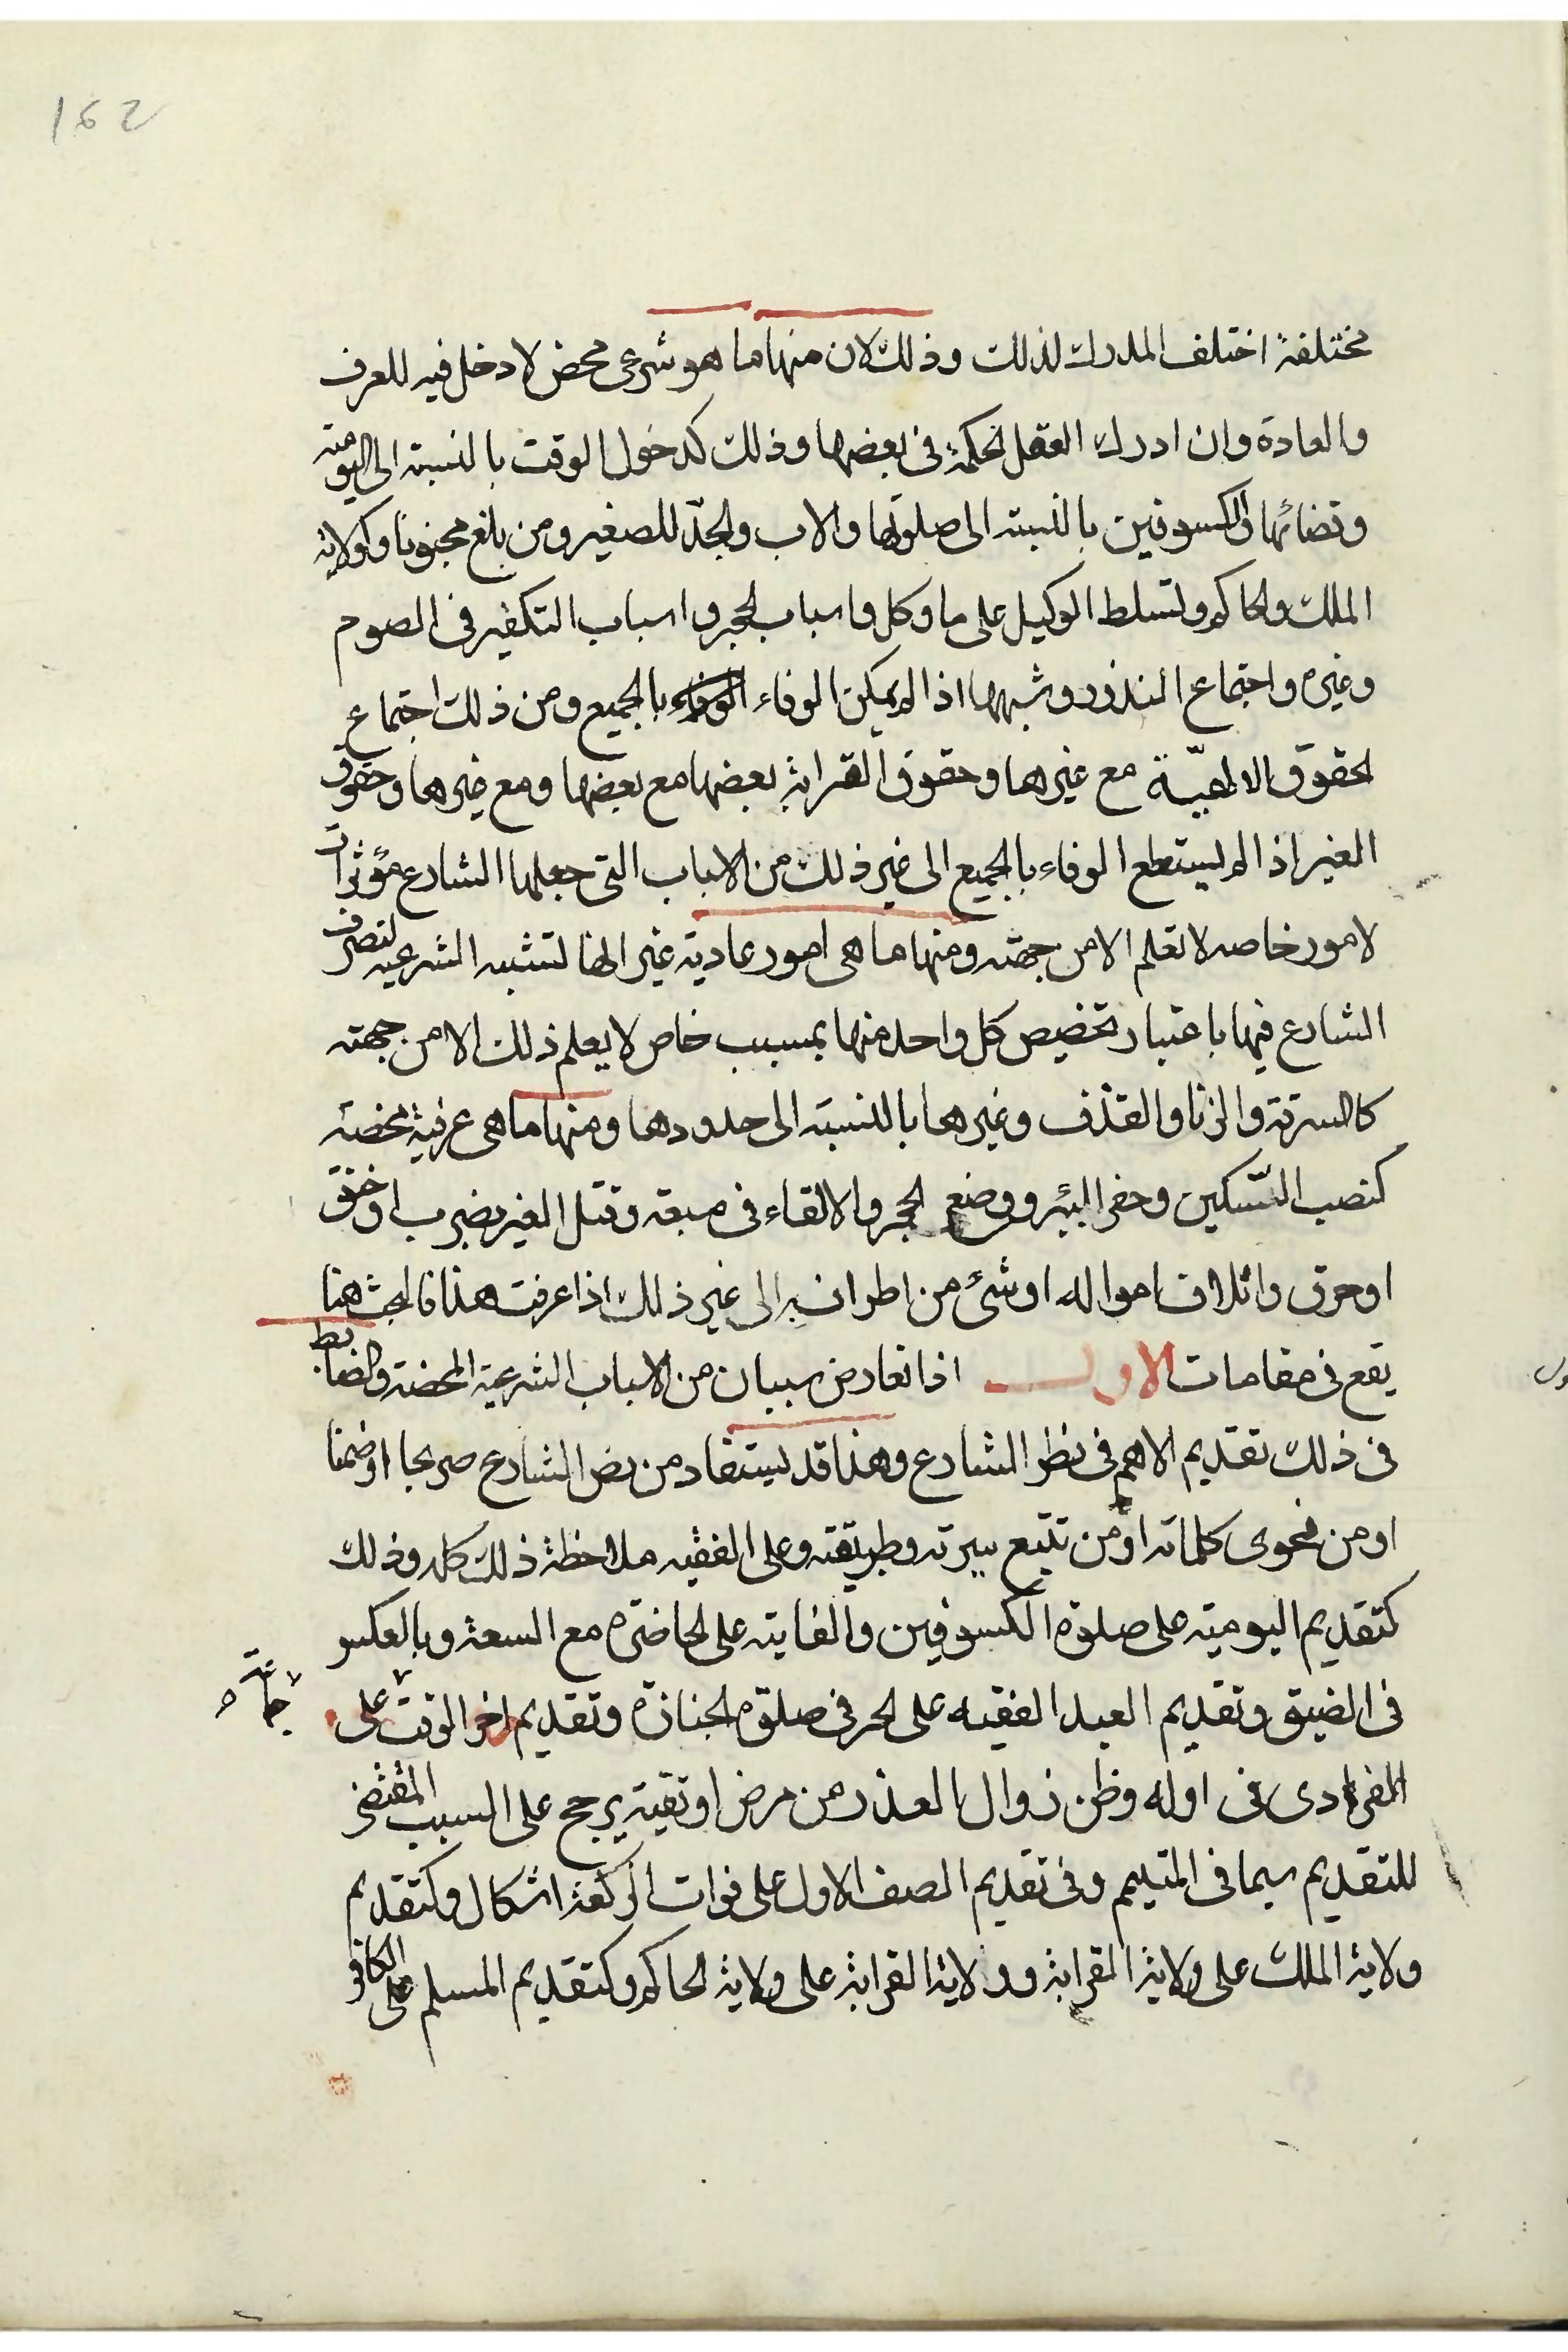 162
مختلفة اختلف المدرك لذلك وذلك لان منها ما هو شرعى محض لا دخل فيه للعرف
والعادة وان ادرك العقل الحكمة فى بعضها وذلك كدخول الوقت بالنسبة الى اليومية
وقضائها والكسوفين بالنسبة الى صلوتها والاب والجدّ للصغير ومن بلغ مجنونا وكولاية
الملك والحاكم وتسلط الوكيل على ما وكل واسباب الحجر واسباب التكفير فى الصوم
وغيره واجتماع النذور وشبهها اذا لم يمكن الوفاء بالجميع ومن ذلك اجتماع
الحقوق الالهيّة مع غيرها وحقوق القرابة بعضها مع بعضها ومع غيرها وحقوق
الغير اذا لم يستطع الوفاء بالجميع الى غير ذلك من الاسباب التى جعلها الشارع مؤثرات
لامور خاصه لا تعلم الا من جهته ومنها ما هى امور عادية غير انها تشبه الشرعيه لتصرف
الشارع فيها باعتبار تخصيص كل واحد منها بمسبب خاص لا يعلم ذلك الا من جهته
كالسرقة والزنا والقذف وغيرها بالنسبة الى حدودها ومنها ما هى عرفية محضة
كنصب السّكين وحفر البئر ووضع الحجر والالقاء فى مسبعة وقتل الغير بضرب او خنق
او حرق واتلاف امواله او شئ من اطرافه الى غير ذلك اذا عرفت هذا فالبحث هنا
يقع فى مقامات الاول اذا تعارض سببان من الاسباب الشرعية المحضة والضابط
فى ذلك تقديم الاهم فى نظر الشارع وهذا قد يستفاد من نص الشارع صريحا او ضمنا
او من فحوى كلماته او من تتبع سيرته وطريقته وعلى الفقيه ملاحظة ذلك كله وذلك
كتقديم اليومية على صلوة الكسوفين والفايتة على الحاضرة مع السعة وبالعكس
فى الضيق وتقديم العبد الفقيه على الحر فى صلوة الجنازة وتقديم اخر الوقت على
فى اوله وظن زوال العذر من مرض او تقية يرجح على السبب المقتضى
للتقديم سيما فى المتيمم وفى تقديم الصف الاول على فوات الركعة اشكال وكتقديم
ولاية الملك على ولاية القرابة وولاية القرابة على ولاية الحاكم وكتقديم المسلم على الكافر